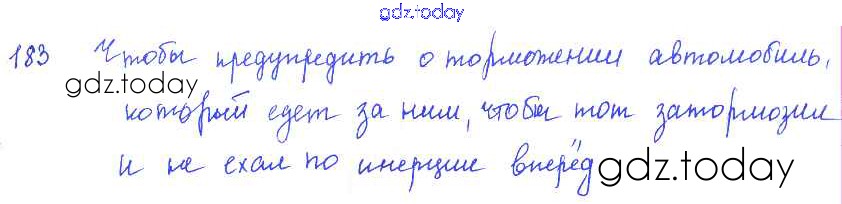 gdz.today
183 Чтобы предупредить о торможении автомобиль,
gdz.today
который едет за ним, чтобы тот затормозил
и не ехал по инерции вперёд
gdz.today